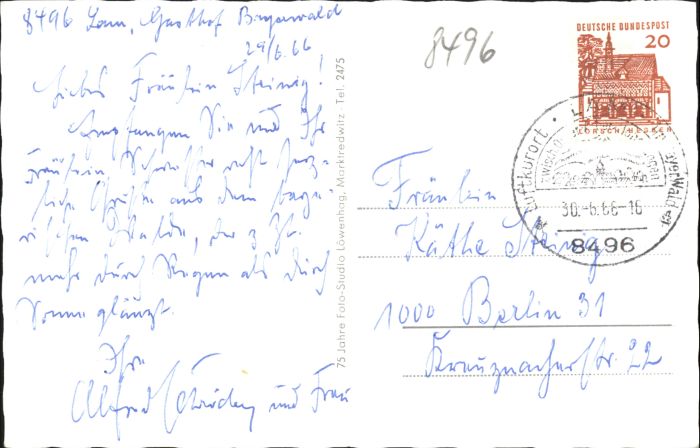 8496 Lam, Gasthof Bayerwald
29/6.66
Liebes Fräulein Steinig!
Empfangen Sie und Ihr
Fräulein Schwester recht herz-
liche Grüße aus dem baye-
rischen Walde, der z. Zt.
mehr durch Regen als durch
Sonne glänzt.
Ihre
Alfred und Frau
75 Jahre Foto-Studio Löwenhag, Marktredwitz · Tel. 2475
8496
DEUTSCHE BUNDESPOST
20
LORSCH/HESSEN
Luftkurort · LAM
Bayer Wald
30.-6.66-16
8496
Fräulein
Käthe Steinig
1000 Berlin 31
Kreuznacherstr. 22